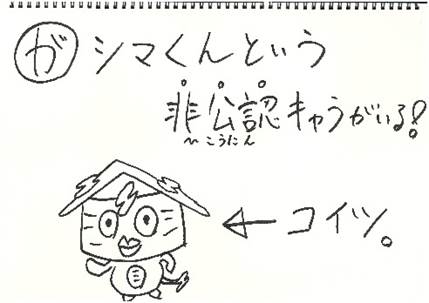 が シマくんという
非公認キャラがいる!
ひこうにん
コイツ。